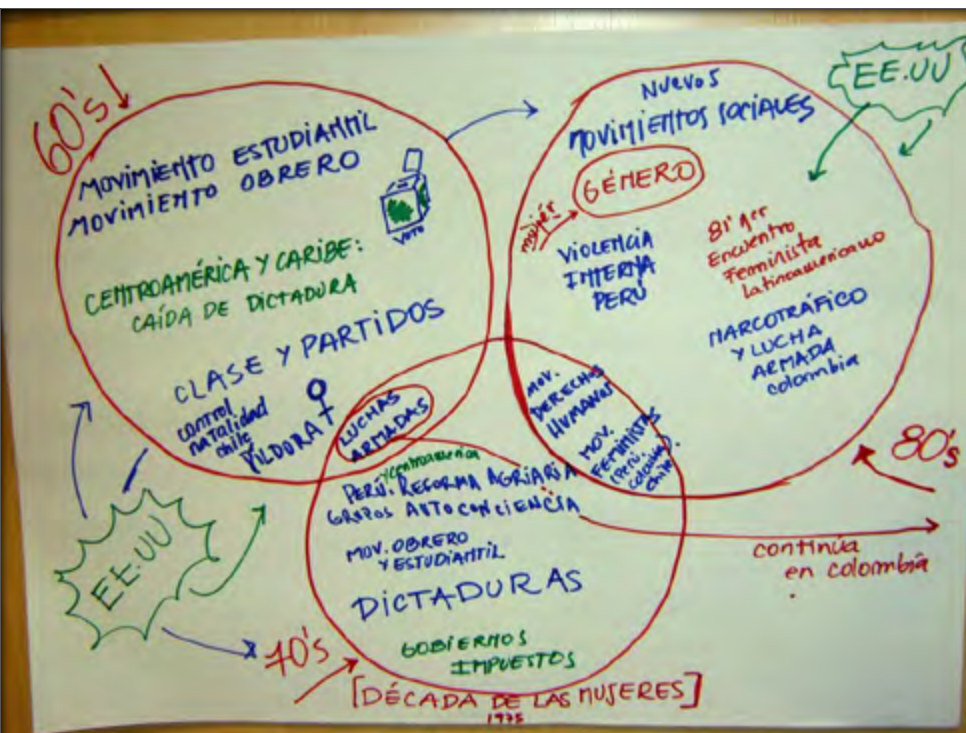 60's
MOVIMIENTO ESTUDIANTIL
MOVIMIENTO OBRERO
VOTO
CENTROAMÉRICA Y CARIBE:
CAÍDA DE DICTADURA
CLASE Y PARTIDOS
control
natalidad
chile
PILDORA
LUCHAS
ARMADAS
EE.UU
NUEVOS
MOVIMIENTOS SOCIALES
EE.UU
GÉNERO
mujer
VIOLENCIA
INTERNA
PERÚ
81' 1er
Encuentro
Feminista
Latinoamericano
NARCOTRÁFICO
Y LUCHA
ARMADA
colombia
MOV.
DERECHOS
HUMANOS
MOV.
FEMINISTAS
(Perú,
colombia,
chile).
80's
y centroamerica
PERÚ. REFORMA AGRIARIA
GRUPOS AUTOCONCIENCIA
MOV. OBRERO
Y ESTUDIANTIL
DICTADURAS
GOBIERNOS
IMPUESTOS
continúa
en colombia
70's
[DÉCADA DE LAS MUJERES]
1975